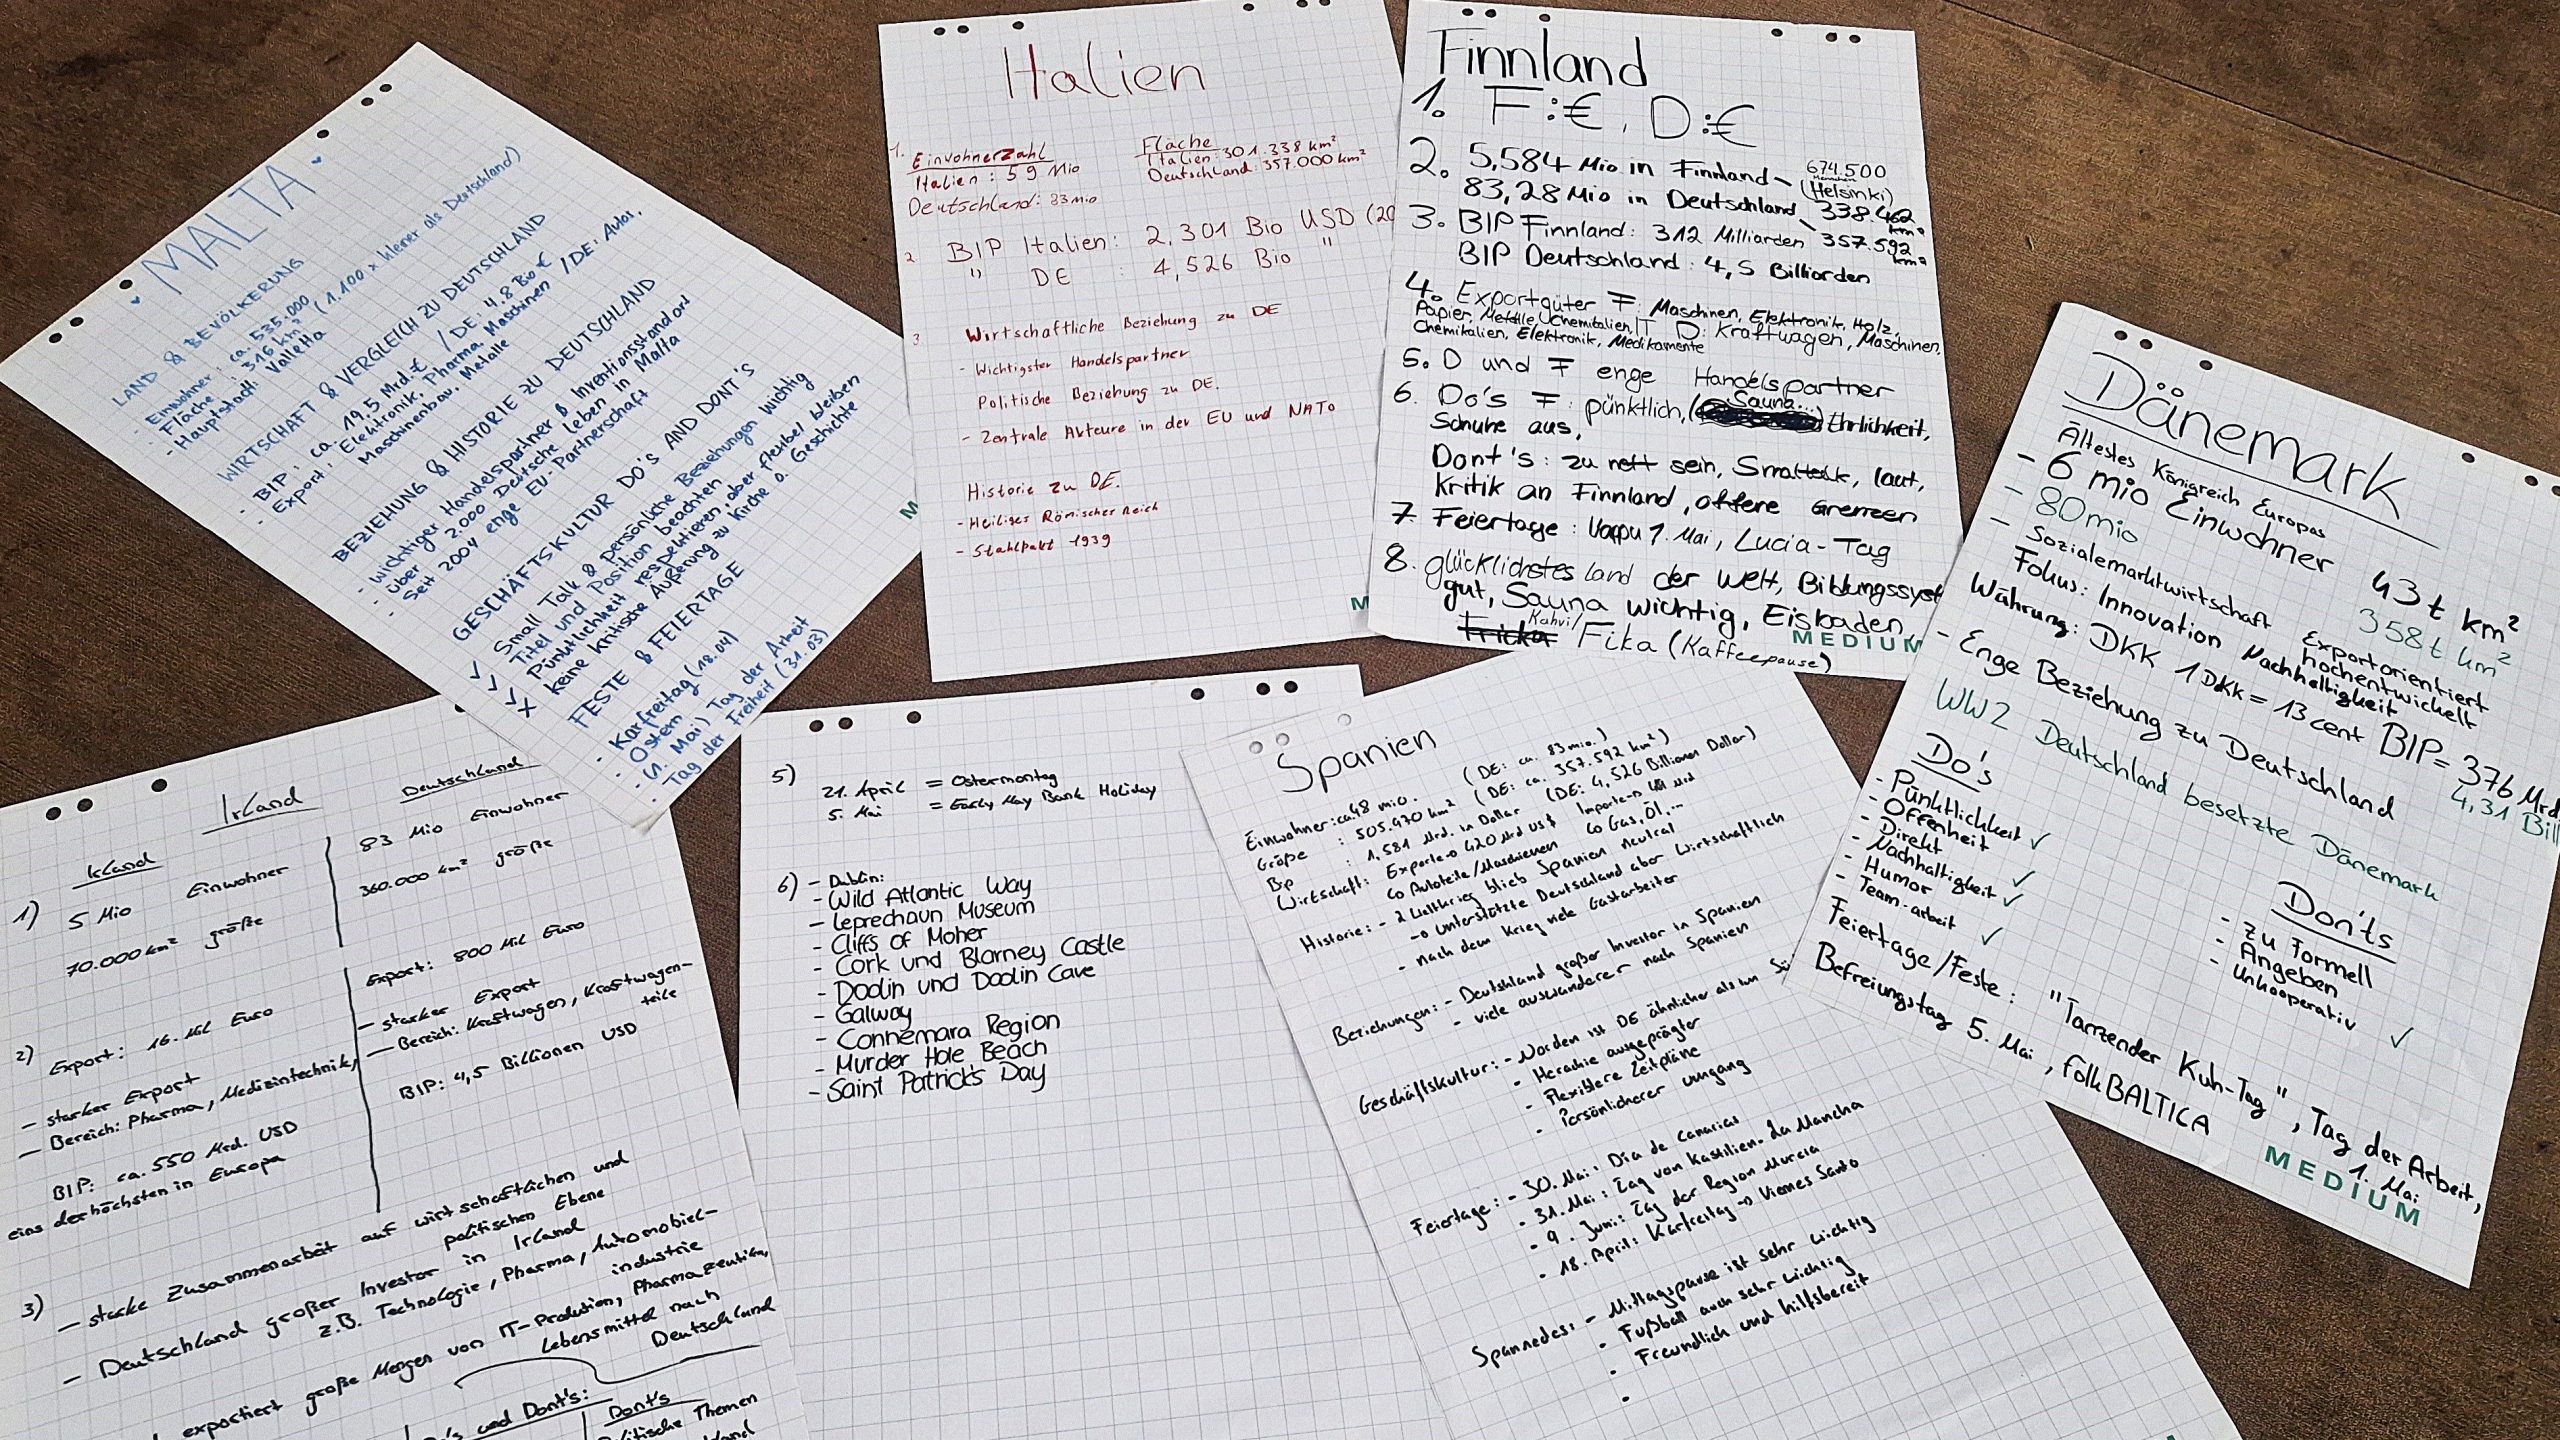 MALTA
LAND & BEVÖLKERUNG
- Einwohner: ca. 535.000
- Fläche: 316 km² (1.100 x kleiner als Deutschland)
- Hauptstadt: Valletta
WIRTSCHAFT & VERGLEICH ZU DEUTSCHLAND
- BIP: ca. 19,5 Mrd. € / DE: 4,8 Bio €
- Export: Elektronik, Pharma, Maschinen / DE: Autos,
Maschinenbau, Metalle
BEZIEHUNG & HISTORIE ZU DEUTSCHLAND
- wichtiger Handelspartner & Inventionsstandort
- über 2.000 Deutsche leben in Malta
- Seit 2004 enge EU-Partnerschaft
GESCHÄFTSKULTUR DO'S AND DONT'S
✓ Small Talk & persönliche Beziehungen wichtig
✓ Titel und Position beachten
✓ Pünktlichkeit respektieren, aber flexibel bleiben
x keine kritische Äußerung zu Kirche o. Geschichte
FESTE & FEIERTAGE
- Karfreitag (18.04)
- Ostern
- (1. Mai) Tag der Arbeit
- Tag der Freiheit (31.03)
Italien
1. Einwohnerzahl
Italien: 59 Mio
Deutschland: 83 Mio
Fläche
Italien: 301.338 km²
Deutschland: 357.000 km²
2 BIP Italien: 2,301 Bio USD (20
" DE : 4,526 Bio "
3 Wirtschaftliche Beziehung zu DE
- Wichtigster Handelspartner
Politische Beziehung zu DE.
- Zentrale Akteure in der EU und NATO
Historie zu DE.
- Heiliges Römischer Reich
- Stahlpakt 1939
M
Finnland
1. F:€, D:€
2. 5,584 Mio in Finnland - 674.500
Menschen
(Helsinki)
338.462 km²
83,28 Mio in Deutschland
357.592 km²
3. BIP Finnland: 312 Milliarden
BIP Deutschland: 4,5 Billiarden
4. Exportgüter F: Maschinen, Elektronik, Holz,
Papier, Metalle, Chemikalien, IT D: Kraftwagen, Maschinen,
Chemikalien, Elektronik, Medikamente
5. D und F enge Handelspartner
6. Do's F: pünktlich, (Sauna...) Ehrlichkeit,
Schuhe aus,
Dont's: zu nett sein, Smalltalk, laut,
Kritik an Finnland, offene Grenzen
7. Feiertage: Vappu 1. Mai, Lucia-Tag
8. glücklichstes land der Welt, Bildungssyst
gut, Sauna wichtig, Eisbaden,
Fricka Kahvi/Fika (Kaffeepause)
MEDIUM
Dänemark
Ältestes Königreich Europas
- 6 mio Einwohner 43t km²
- 80mio 358t km²
- Sozialemarktwirtschaft Exportorientiert
hochentwickelt
Fokus: Innovation Nachhaltigkeit
Währung: DKK 1 DKK = 13 cent BIP = 376 Mrd
4,31 Bill
- Enge Beziehung zu Deutschland
WW2 Deutschland besetzte Dänemark
Do's
- Pünktlichkeit ✓
- Offenheit
- Direkt ✓
- Nachhaltigkeit ✓
- Humor
- Team-arbeit ✓
Don'ts
- zu Formell
- Angeben
- Unkooperativ ✓
Feiertage/Feste: "Tanzender Kuh-Tag", Tag der Arbeit,
1. Mai
Befreiungstag 5. Mai, folkBALTICA
MEDIUM
Irland
Irland
Deutschland
1) 5 Mio Einwohner
70.000 km² größe
83 Mio Einwohner
360.000 km² größe
2) Export: 16. Mil Euro
- starker Export
- Bereich: Pharma, Medizintechnik,
BIP: ca. 550 Mrd. USD
eins der höchsten in Europa
Export: 800 Mil Euro
- starker Export
- Bereich: Kraftwagen, Kraftwagen-
teile
BIP: 4,5 Billionen USD
3) - starke Zusammenarbeit auf wirtschaftlichen und
politischen Ebene
- Deutschland großer Investor in Irland
z.B. Technologie, Pharma, Automobiel-
industrie
exportiert große Mengen von IT-Produkten, Pharmazeutika,
Lebensmittel nach
Deutschland
und Dont's:
Dont's
5) 21. April = Ostermontag
5. Mai = Early May Bank Holiday
6) - Dublin:
- Wild Atlantic Way
- Leprechaun Museum
- Cliffs of Moher
- Cork und Blarney Castle
- Doolin und Doolin Cave
- Galway
- Connemara Region
- Murder Hole Beach
- Saint Patrick's Day
Spanien
Einwohner: ca. 48 mio. (DE: ca. 83 mio.)
Größe : 505.970 km² (DE: ca. 357.592 km²)
Bip : 1,581 Mrd. in Dollar (DE: 4,526 Billionen Dollar)
Wirtschaft: Exporte → 420 Mrd US$
Autoteile/Maschienen
Gas, Öl,...
Historie: - 2 Weltkrieg blieb Spanien neutral
→ unterstützte Deutschland aber wirtschaftlich
- nach dem Krieg viele Gastarbeiter
Beziehungen: - Deutshland großer Investor in Spanien
- viele auswanderer nach Spanien
Geschäftskultur: - Norden ist DE ähnlicher als im Sü
- Herachie ausgeprägter
- Flexiblere Zeitpläne
- Persönlicherer umgang
Feiertage: - 30. Mai: Día de Canarias
- 31. Mai: Tag von Kastilien-La Mancha
- 9. Juni: Tag der Region Murcia
- 18. April: Karfreitag → Viernes Santo
Spannedes: - Mittagspause ist sehr wichtig
- Fußball auch sehr wichtig
- Freundlich und hilfsbereit
-